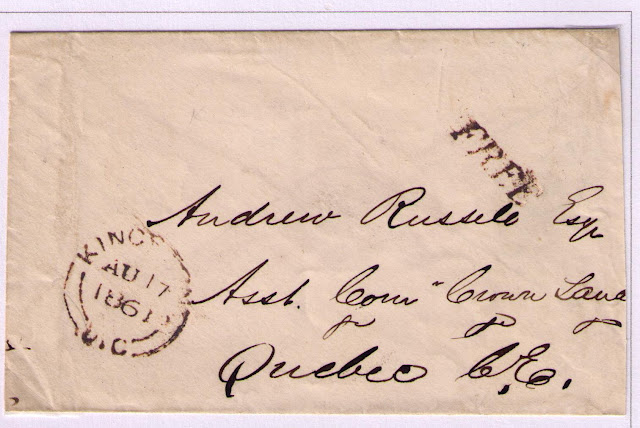 FREE
Andrew Russell Esqr
Asst. Com" Crown Land
Quebec C.E.
KINGS
AU 17
1861
U.C